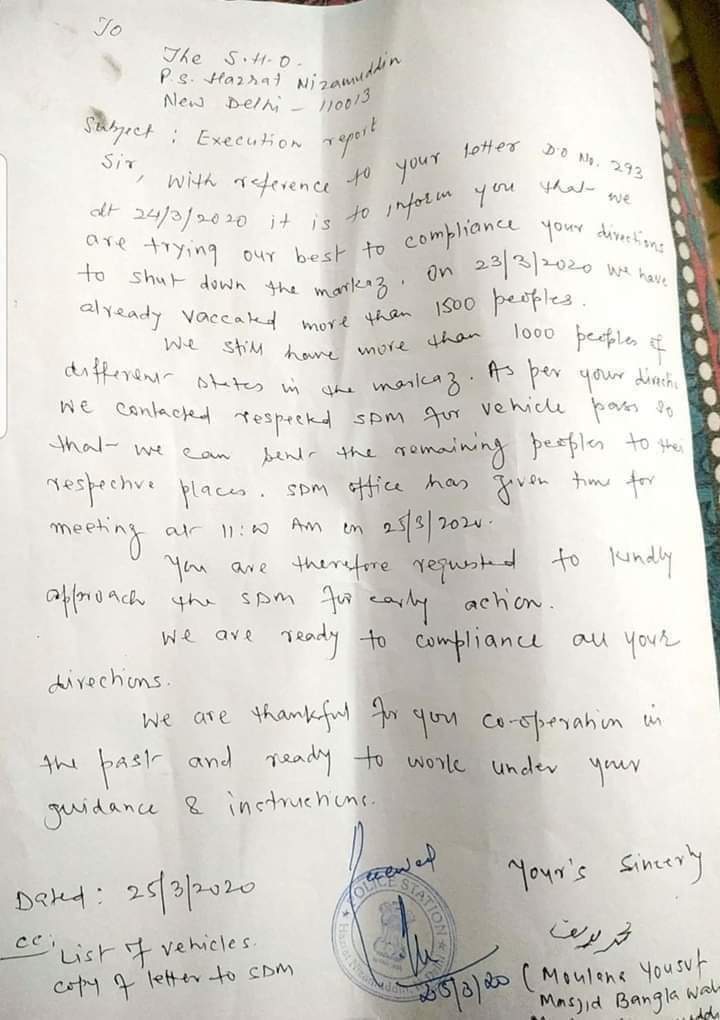 To
The S.H.O.
P.S. Hazrat Nizamuddin
New Delhi - 110013
Subject : Execution report
Sir,
With reference to your letter D.O No. 293
dt 24/3/2020 it is to inform you that we
are trying our best to compliance your directions
to shut down the markaz. On 23/3/2020 we have
already vaccated more than 1500 peoples.
We still have more than 1000 peoples of
different states in the markaz. As per your directi
we contacted respected SDM for vehicle pass so
that we can sent the remaining peoples to their
respective places. SDM office has given time for
meeting at 11:00 AM on 25/3/2020.
You are therefore requested to kindly
approach the SDM for early action.
We are ready to compliance all your
directions.
We are thankful for you co-operation in
the past and ready to work under your
guidance & instructions.
Dated : 25/3/2020
cc: List of vehicles.
copy of letter to SDM
Received
POLICE STATION
Hazrat Nizamuddin
25/3/20
Your's Sincerly
محمد یوسف
(Moulana Yousuf
Masjid Bangla wal